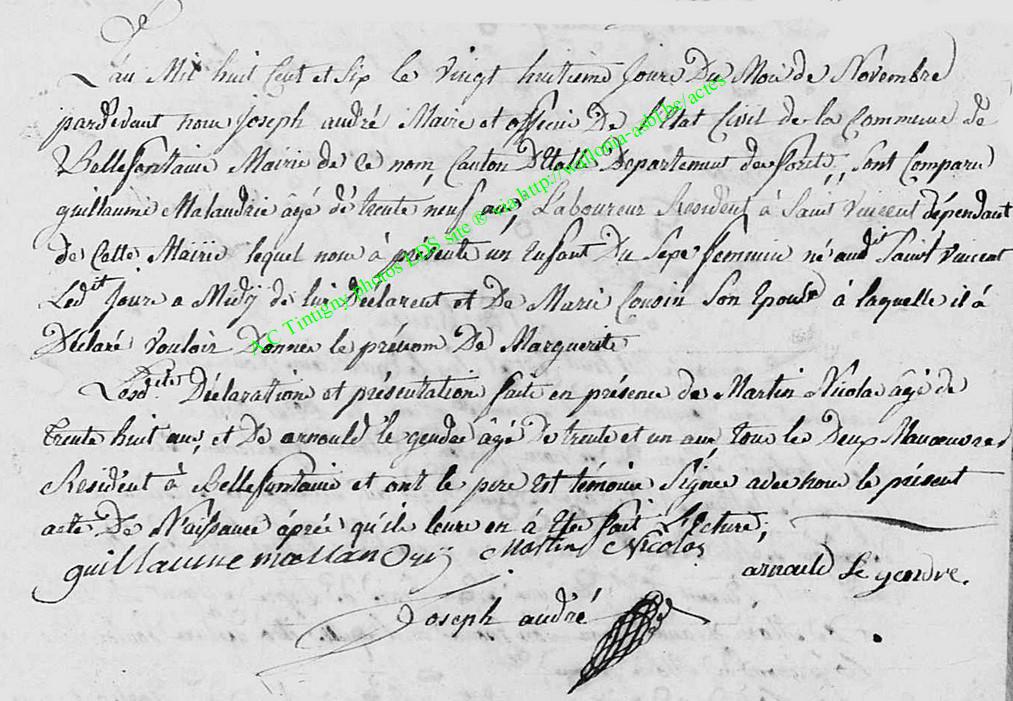 L'an Mil huit Cent et Six le vingt huitieme Jour Du Mois de Novembre
pardevant nous Joseph andré Maire et officier De l'Etat Civil de la Commune de
Bellefontaine Mairie de ce nom, Canton D'Etalle Departement des forêts, Sont Comparu
guillaume Malandrie agé de trente neuf ans, Laboureur Résident à Saint Vincent dépendant
de Cette Mairie lequel nous à présenté un Enfant Du Sexe feminin né audit Saint Vincent
Ledit Jour a Midy de lui déclarent et De Marie Cousin Son Epouse à laquelle il à
Déclaré vouloir Donner le prénom De Marguerite
Lesdites Déclaration et présentation faite en présence de Martin Nicolas âgé de
trente huit ans, et De arnould le gendre âgé De trente et un ans, tous les Deux Manoeuvres
Résident à Bellefontaine et ont le pere Est témoins Signés avec nous le présent
acte De Naissance âprés qu'ils leurs en à Eter fait Lecture;
guillaume mallandry Martin Nicolas
arnould le gendre.
Joseph andré
AC Tintigny photos LDS site ® via http://wallonia-asbl.be/actes